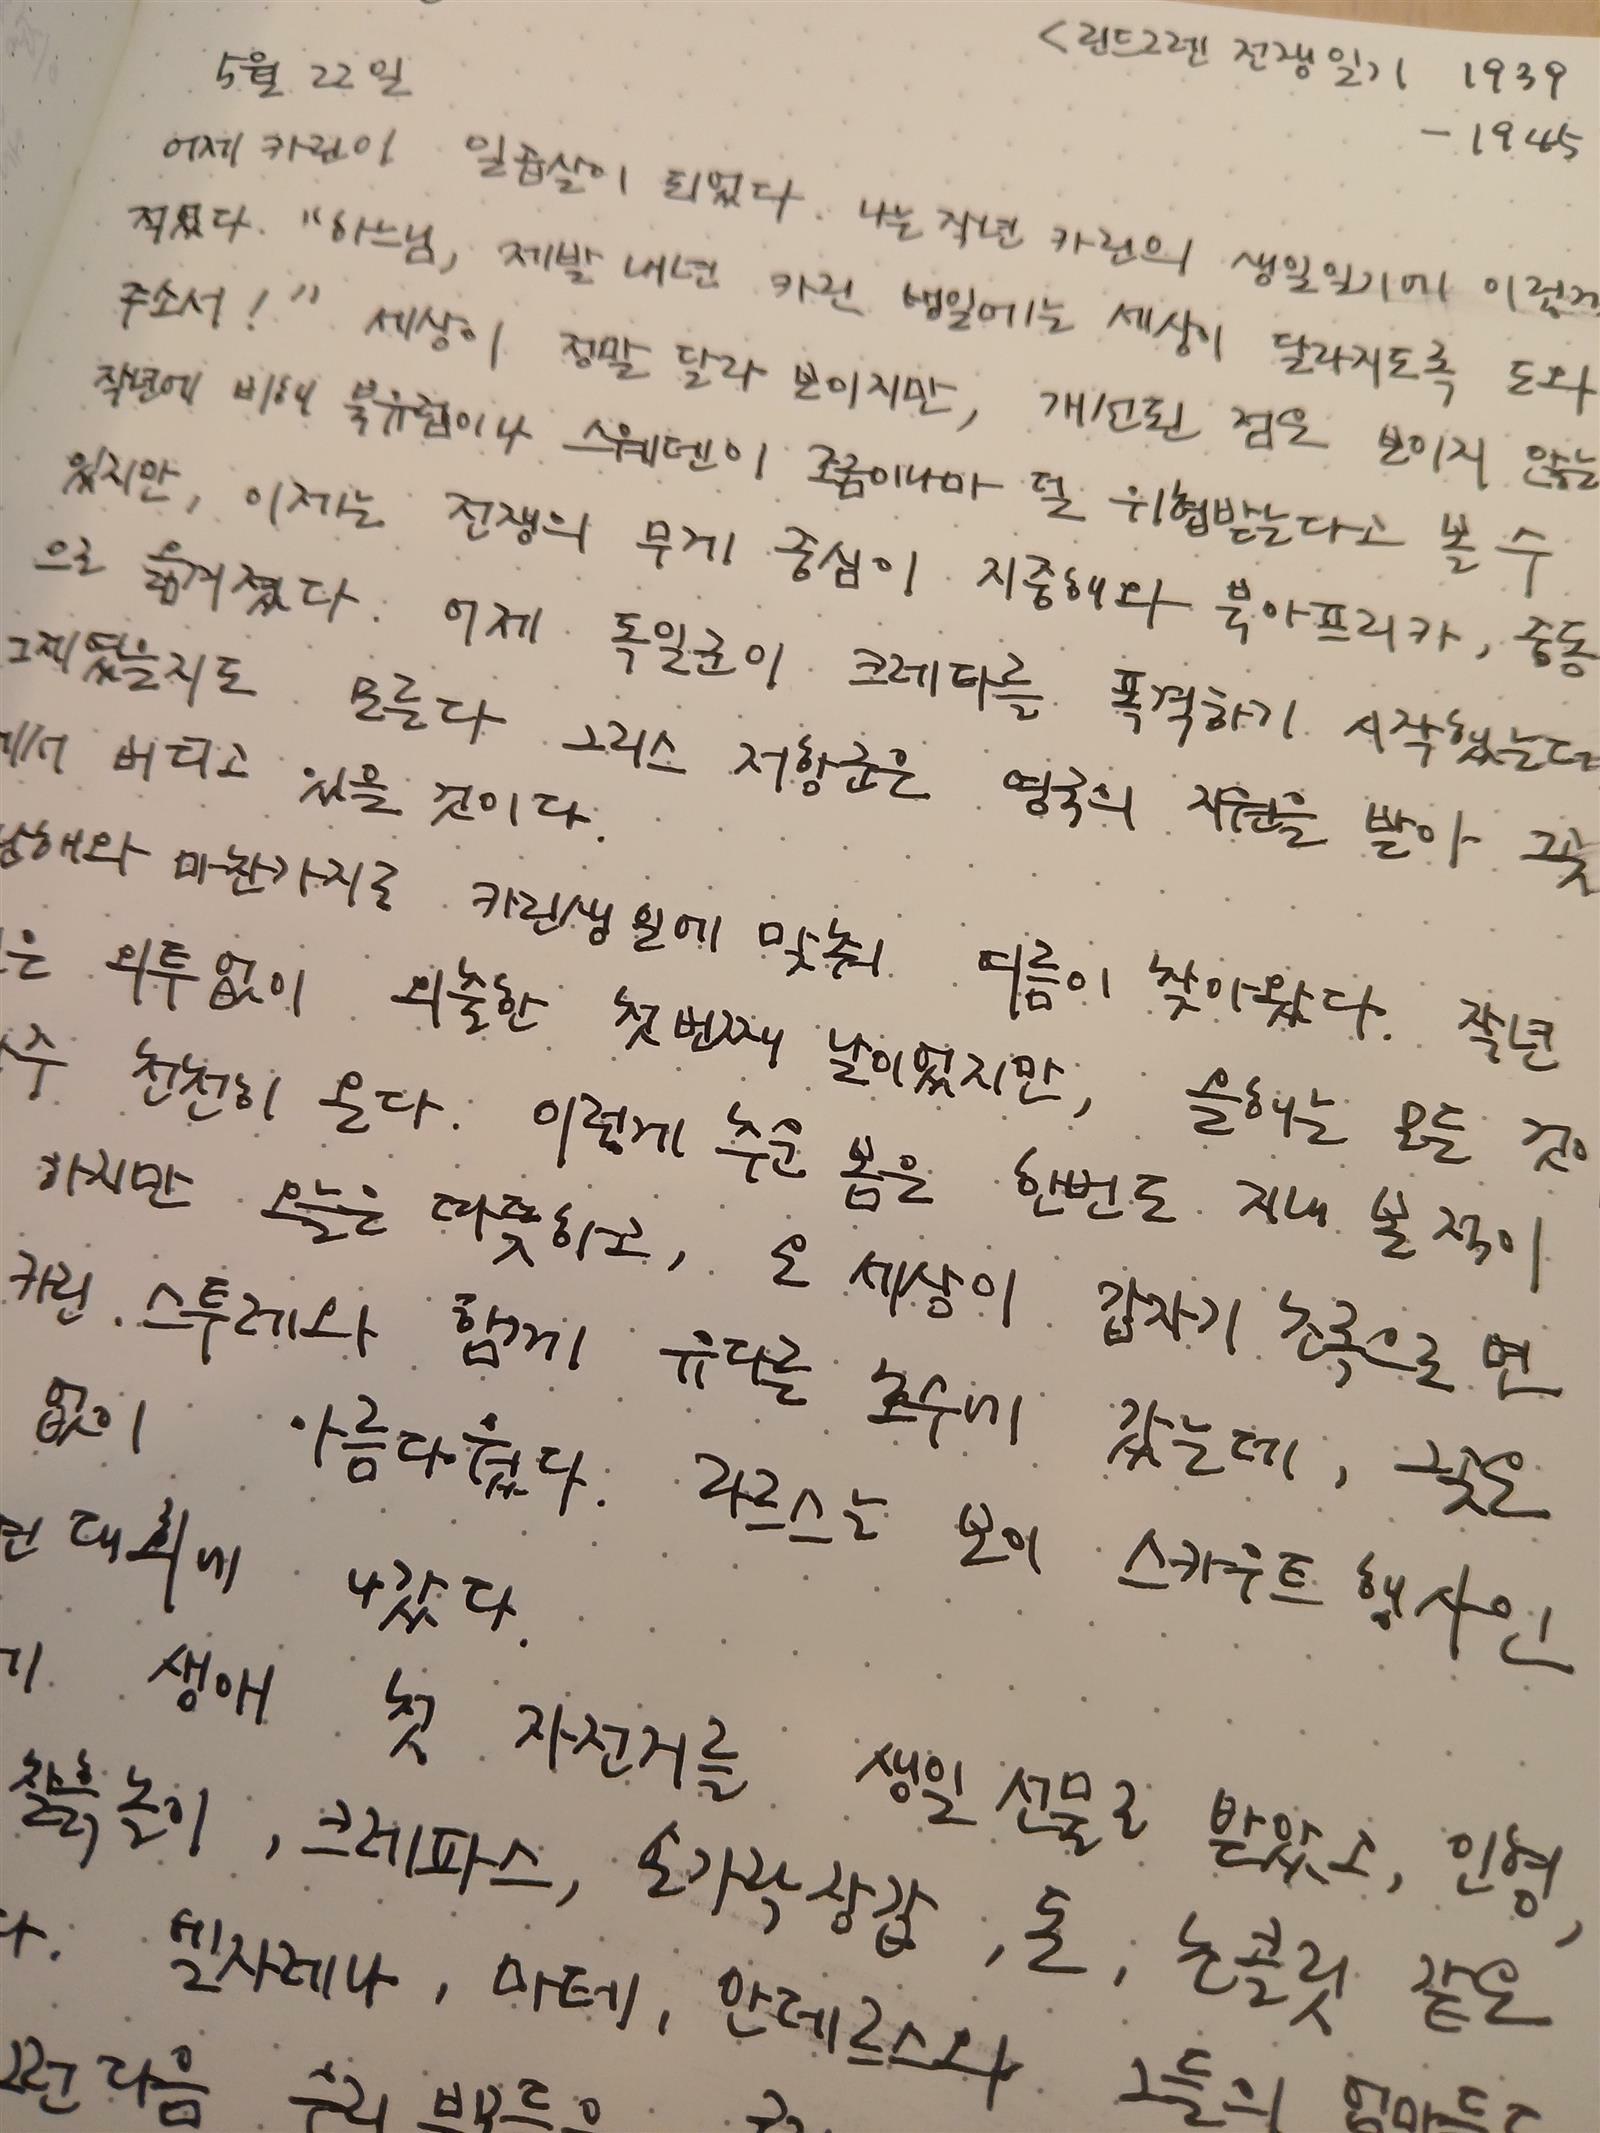 <린드그렌 전쟁일기 1939
-1945
5월 22일
어제 카린이 일곱살이 되었다. 나는 작년 카린의 생일일기에 이렇게
적었다. "하느님, 제발 내년 카린 생일에는 세상이 달라지도록 도와
주소서!" 세상이 정말 달라 보이지만, 개선된 점은 보이지 않는
작년에 비해 북유럽이나 스웨덴이 조금이나마 덜 위협받는다고 볼 수
있지만, 이제는 전쟁의 무게 중심이 지중해와 북아프리카, 중동
으로 옮겨졌다. 어제 독일군이 크레타를 폭격하기 시작했는데
그제였을지도 모른다 그리스 저항군은 영국의 지원을 받아 그곳
에서 버티고 있을 것이다.
해와 마찬가지로 카린생일에 맞춰 여름이 찾아왔다. 작년
은 외투없이 외출한 첫번째 날이었지만, 올해는 모든 것
주 천천히 온다. 이렇게 추운 봄은 한번도 지내 본 적이
하지만 오늘은 따뜻하고, 온 세상이 갑자기 초록으로 변
카린. 스투레와 함께 유다른 호수에 갔는데, 그곳은
없이 아름다웠다. 라르스는 보이 스카우트 행사인
대회에 나갔다.
기 생애 첫 자전거를 생일 선물로 받았고, 인형,
찰흙놀이, 크레파스, 손가락장갑, 돈, 초콜릿 같은
다. 엘사레나, 마테, 안데르스와 그들의 엄마들도
그런다음 우리